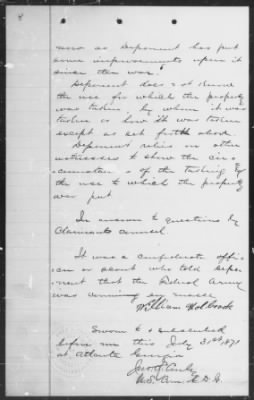 now as Deponent has put
some improvements upon it
since the war.
Deponent does not know
the use for which the property
was taken by whom it was
taken or how it was taken
except as set forth above.
Deponent relies on other
witnesses to show the cir-
cumstances of the taking &
the use to which the property
was put
In answer to questions by
Claimants counsel
It was a confederate offi-
cer or scout who told depo-
nent that the Federal Army
was coming
William Holbrook
Sworn to & subscribed
before me this July 31st 1871
at Atlanta Georgia